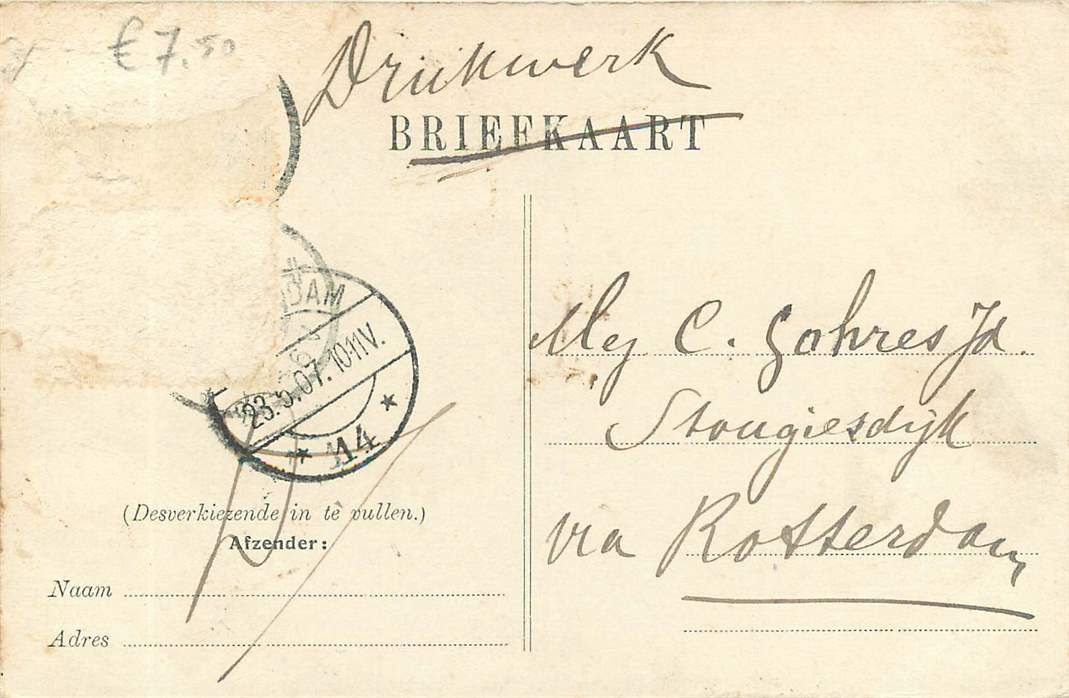 €7.50
Drukwerk
BRIEFKAART
DAM
23.5.07. 10-11V.
* 14 *
Mej C. Gohres Jd.
Stougiesdijk
via Rotterdam
(Desverkiezende in te vullen.)
Afzender:
Naam
Adres